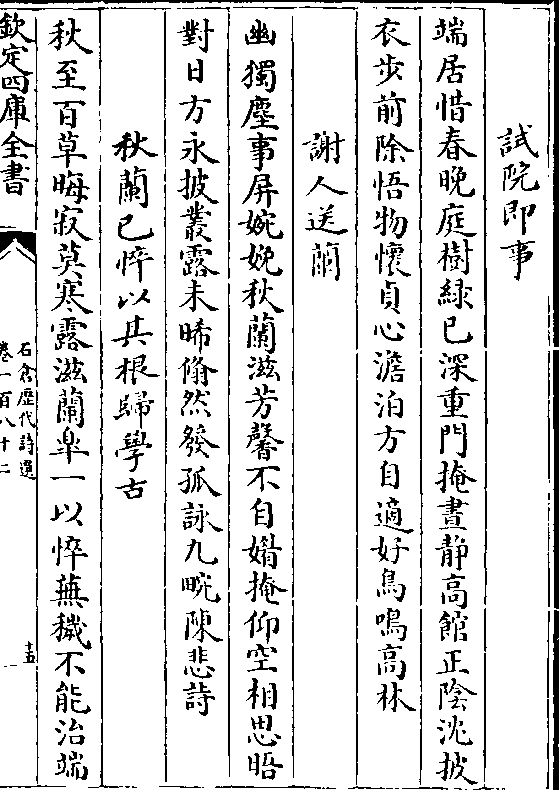 試院即事
端居惜春晚庭樹緑已深重門掩晝静高館正陰沈披
衣步前除悟物懷貞心澹泊方自適好鳥鳴高林
謝人送蘭
幽獨塵事屏婉娩秋蘭滋芳馨不自媚掩仰空相思晤
對日方永披叢露未晞翛然發孤詠九畹陳悲詩
秋蘭已悴以其根歸學古
秋至百草晦寂莫寒露滋蘭臯一以悴蕪穢不能治端
欽定四庫全書
石倉歷代詩選
卷一百八十二
十五